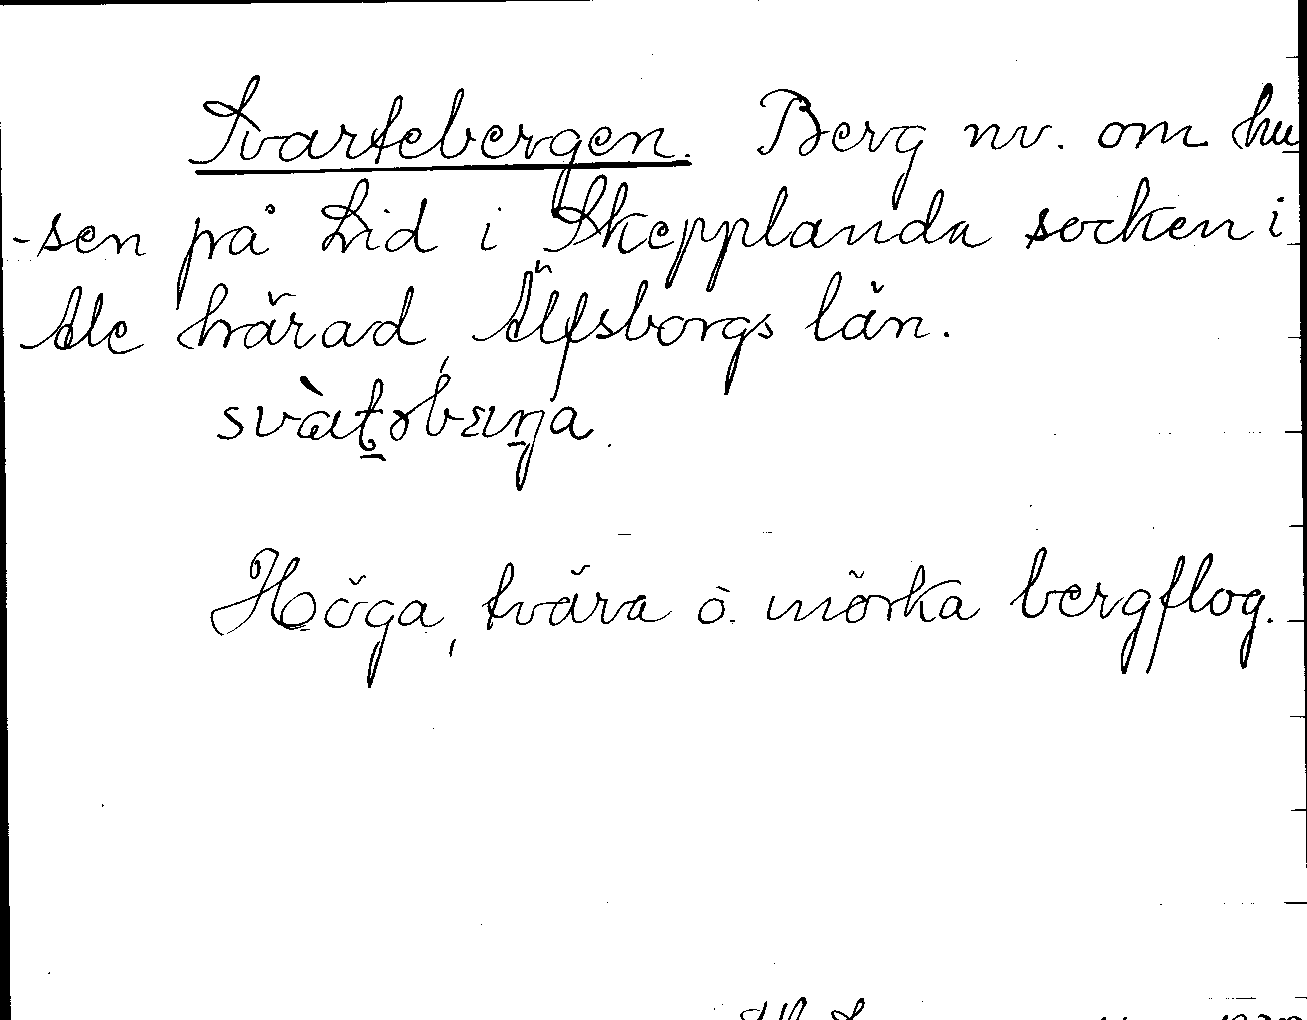 Svartebergen. Berg nv. om hu
-sen på Lid i Skepplanda socken i
Ale härad, Älfsborgs län.
Höga, tvära o. mörka bergflog.